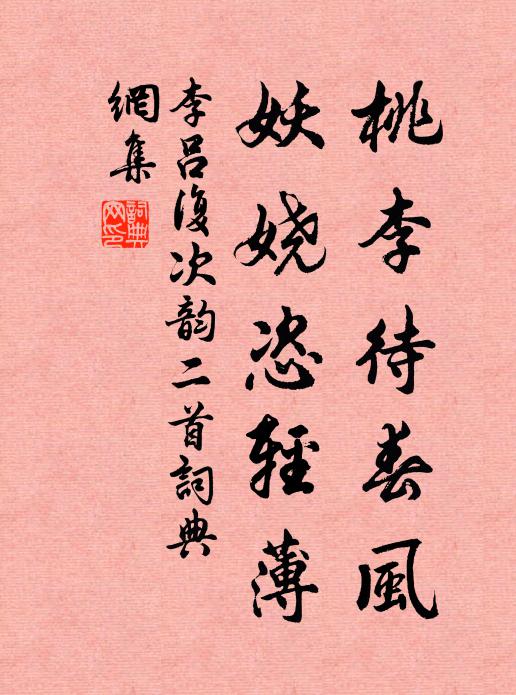 桃李待春風
妖娆恣輕薄
李呂復次韵二首詞典
網集
詞典
网印